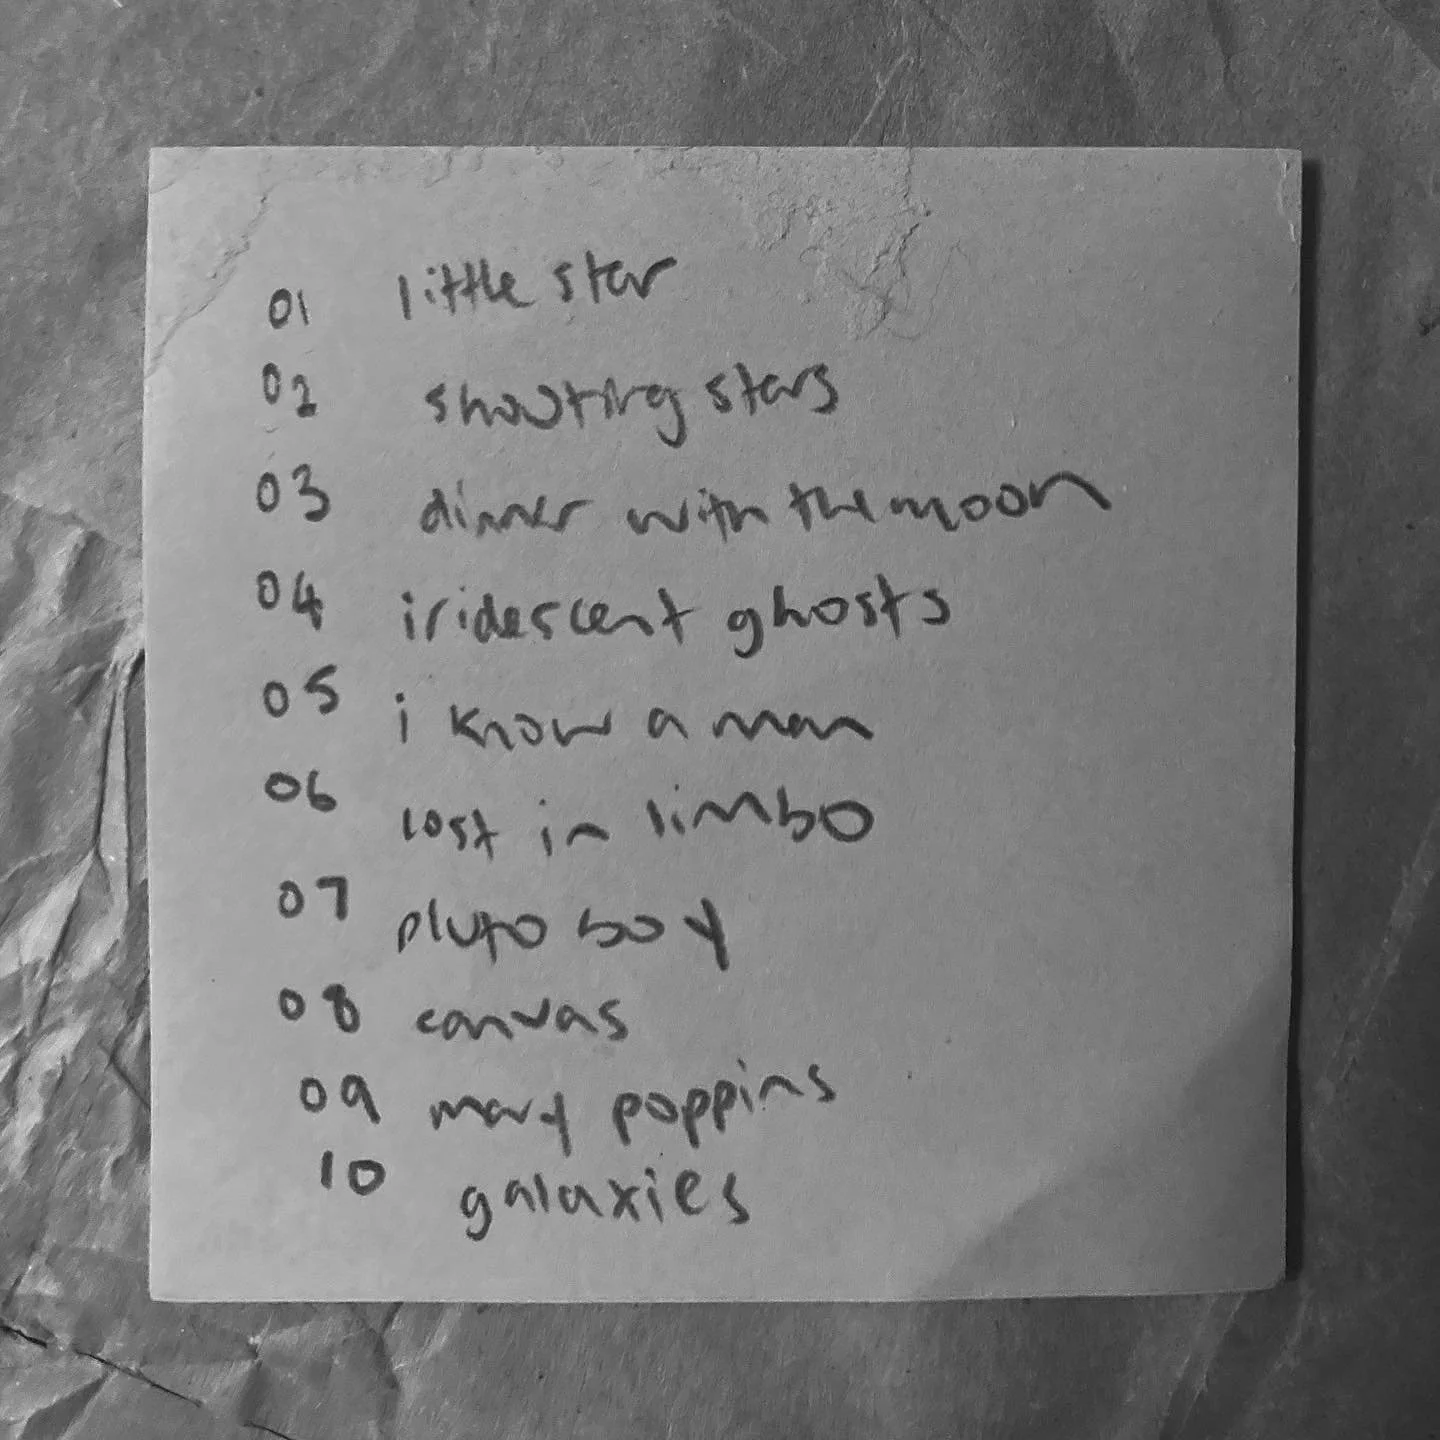 01 little star
02 shooting stars
03 dinner with the moon
04 iridescent ghosts
05 i know a man
06 lost in limbo
07 pluto boy
08 canvas
09 mary poppins
10 galaxies